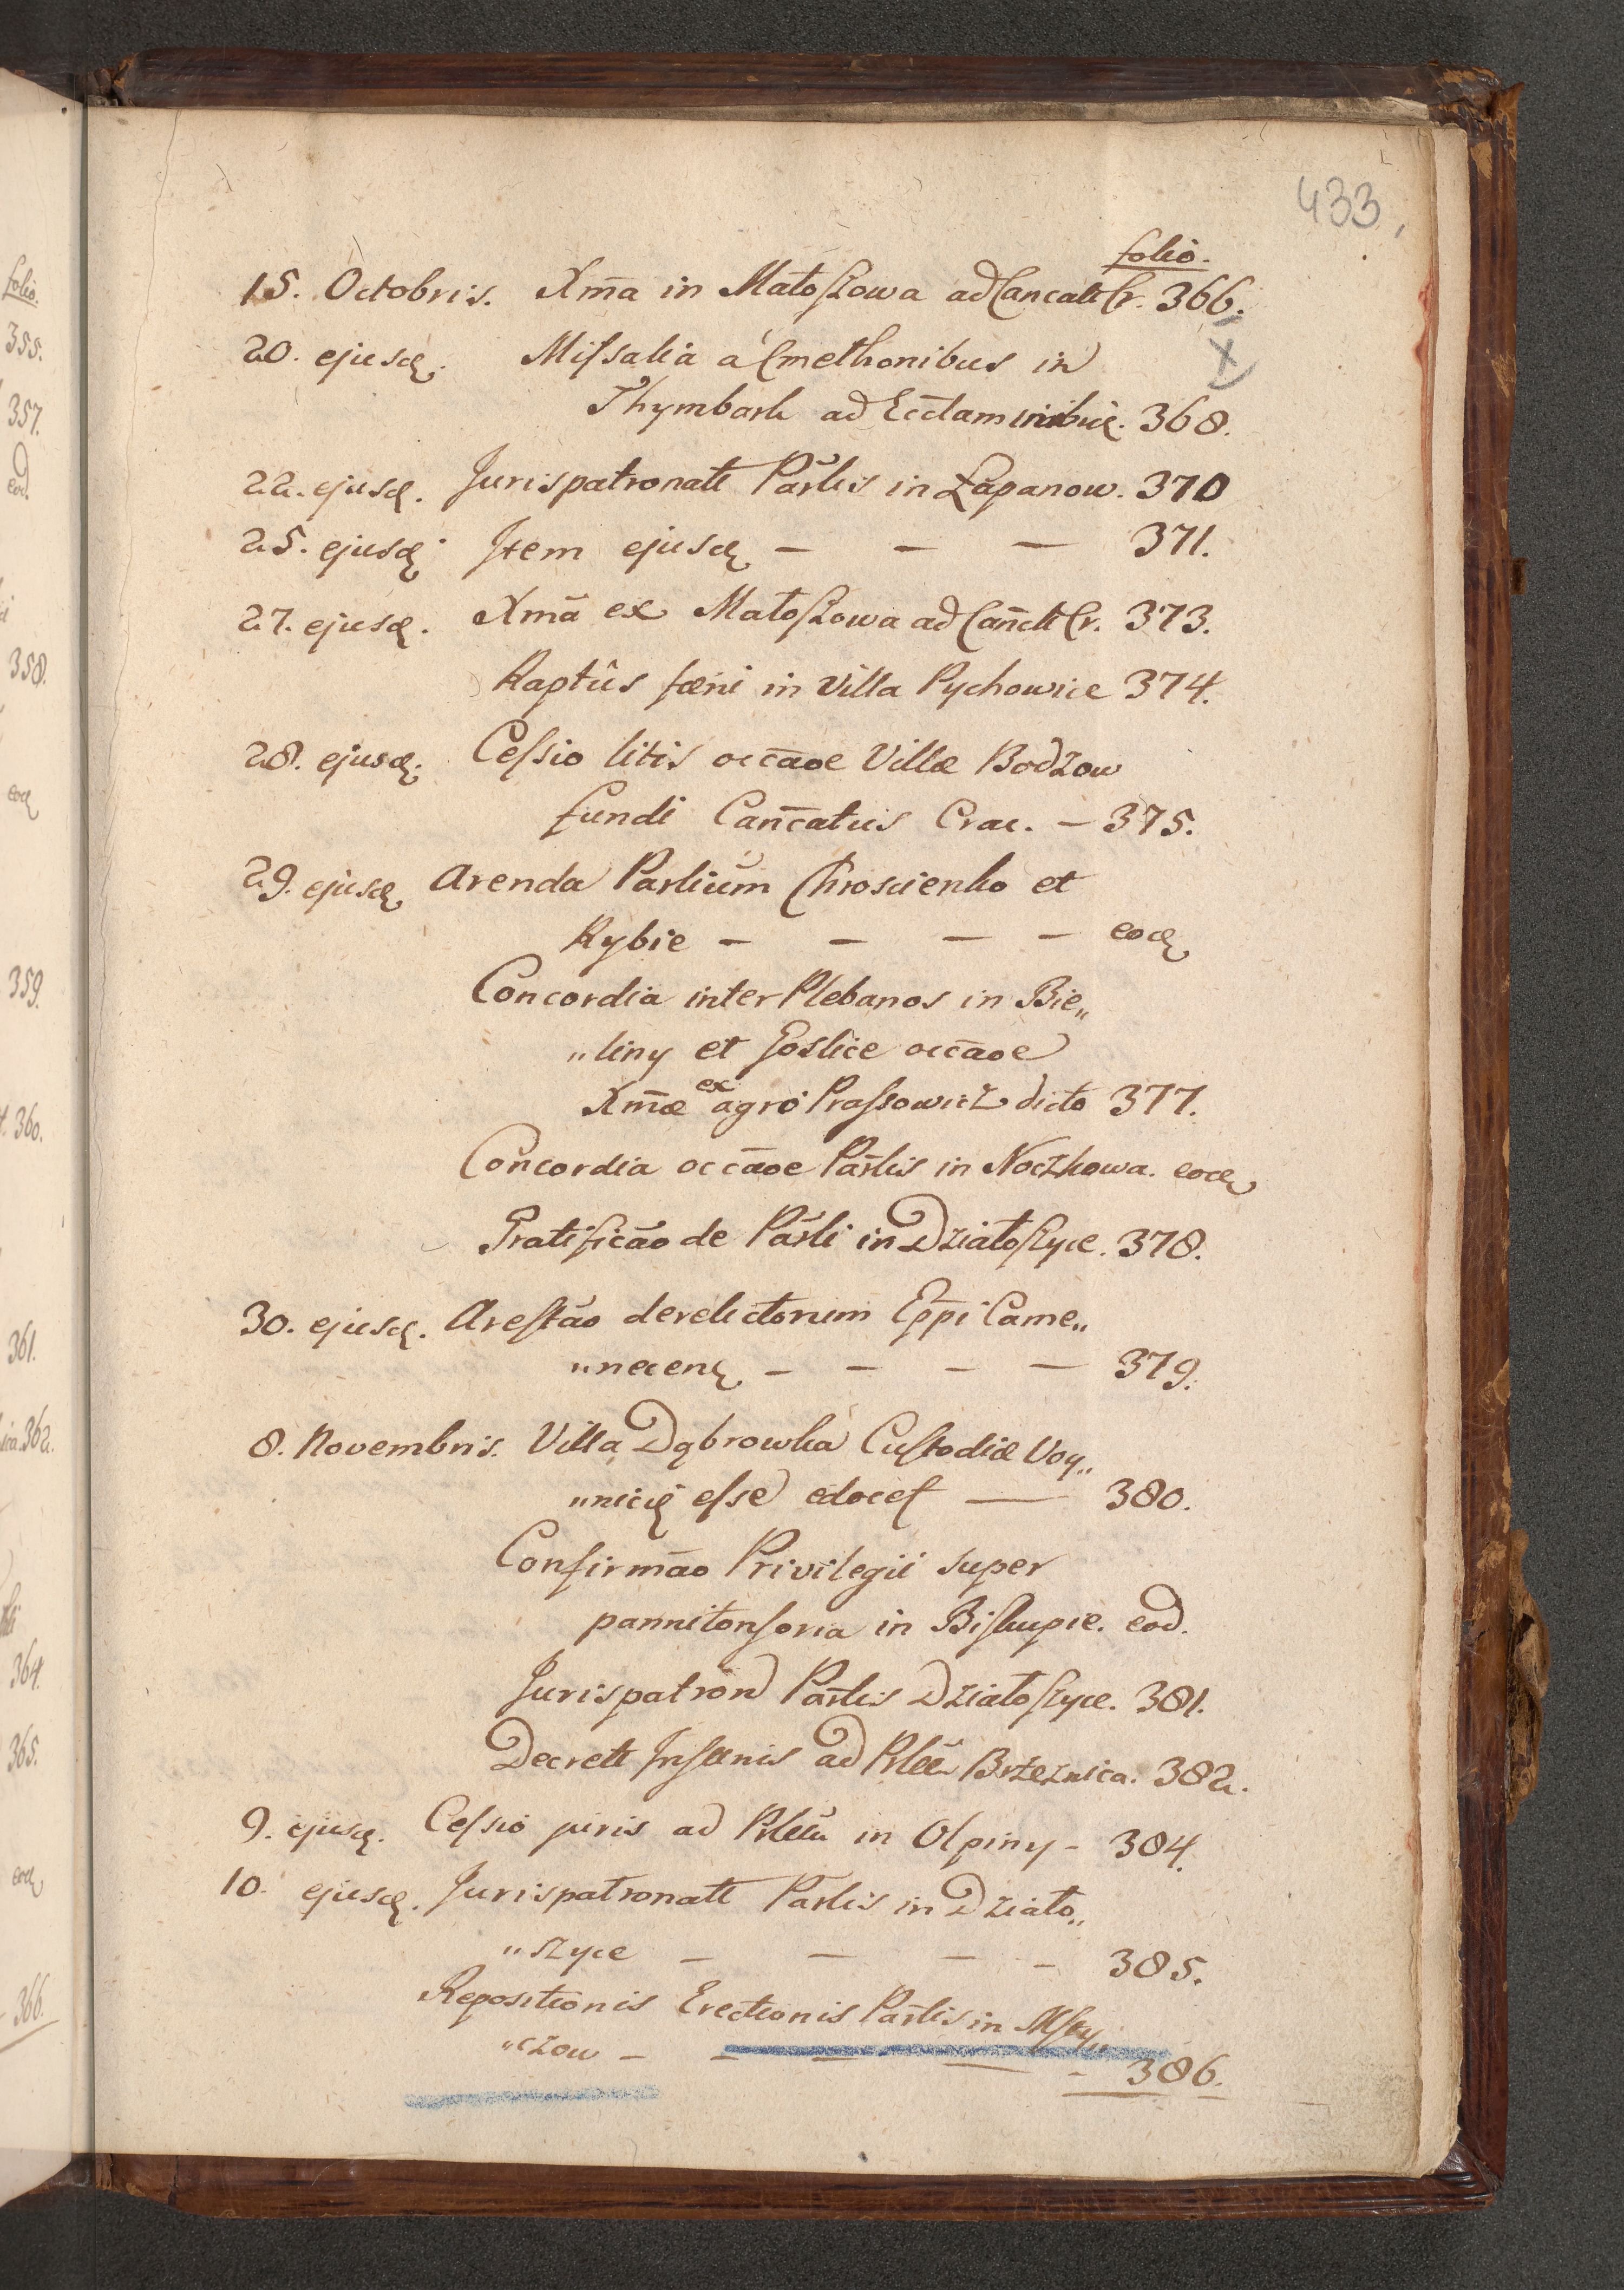 433,
folio.
15. Octobris. Xm̄a in Matoſzowa ad Cancatt Cr. 366.
X
20. ejusd. Miſsalia a Cmethonibus in
Thymbark ad Eccl̄am 368.
22. ejusd. Jurispatronatt Par̄lis in Łapanow. 370
25. ejusd. Item ejusd — — — 371.
27. ejusd. Xmā ex Matoſzowa ad Can̄ctt Cr. 373.
Raptûs fœni in Villa Pychowice 374.
28. ejusd. Ceſsio litis occāoe Villæ Bodzow
fundi Can̄catus Crac. — 375.
29. ejusd. Arenda Parlium Chroscienko et
Rybie — — — — eod
Concordia inter Plebanos in Bie„
„liny et Goslice occāoe
Xm̄æ ex agro Praſsowicz dicto 377.
Concordia occāoe Par̄lis in Noczkowa. eod
Gratificāo de Par̄li in Dziatoſzyce. 378.
30. ejusd. Areſtāo derelictorum Ep̄pi Came„
„necen — — — — 379.
8. Novembris. Villa Dąbrowka Cuſtodiæ Voy„
„nicien eſse edocet — 380.
Confirmāo Privilegii super
pannitonſoria in Biſkupie. eod.
Jurispatron Par̄lis Dziatoſzyce. 381.
Decrett ad Brzeznica. 382.
9. ejusd. Ceſsio juris ad in Olpiny - 384.
10. ejusd. Jurispatronatt Parlis in Dziato„
„szyce — — — - 385.
Repositionis Erectionis Par̄lis in Mſty„
„czow — — — — - 386.
folio.
355.
357.
eod.
358.
eod
359.
360.
361.
362.
364.
365.
eod
366.